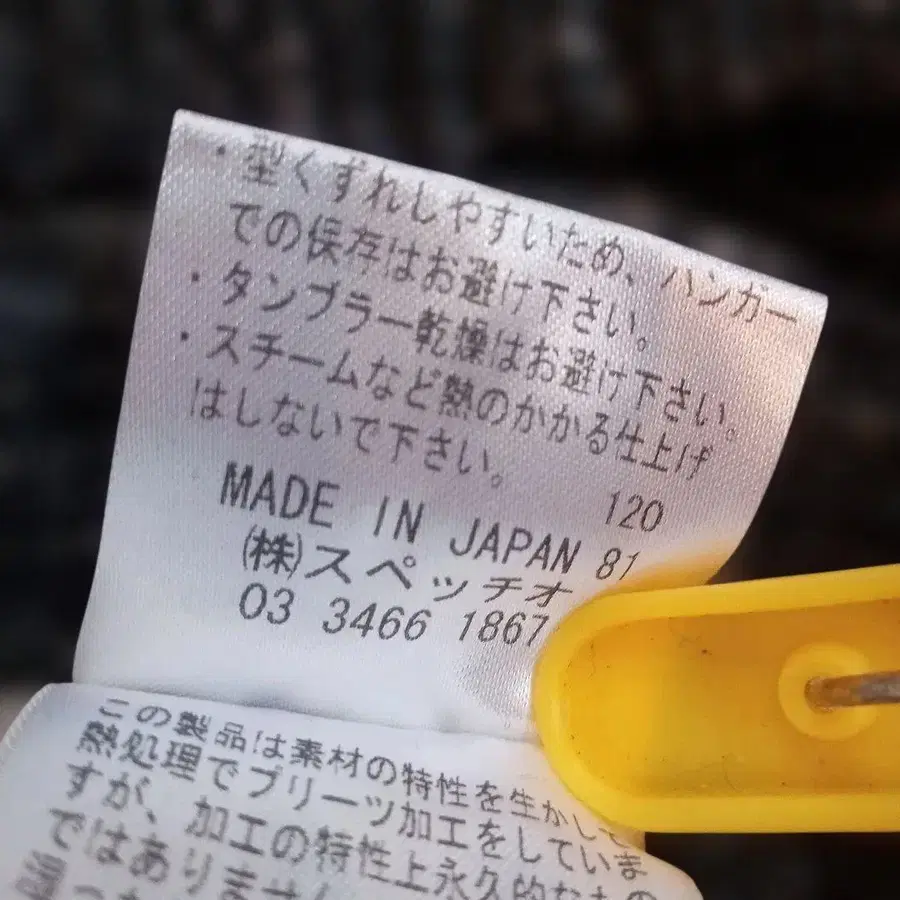 ・型くずれしやすいため、ハンガー
での保存はお避け下さい。
・タンブラー乾燥はお避け下さい。
・スチームなど熱のかかる仕上げ
はしないで下さい。
120
MADE IN JAPAN 81
(株)スペッチオ
03 3466 1867
この製品は素材の特性を生かして
熱処理でプリーツ加工をしていま
すが、加工の特性上永久的なもの
ではありません